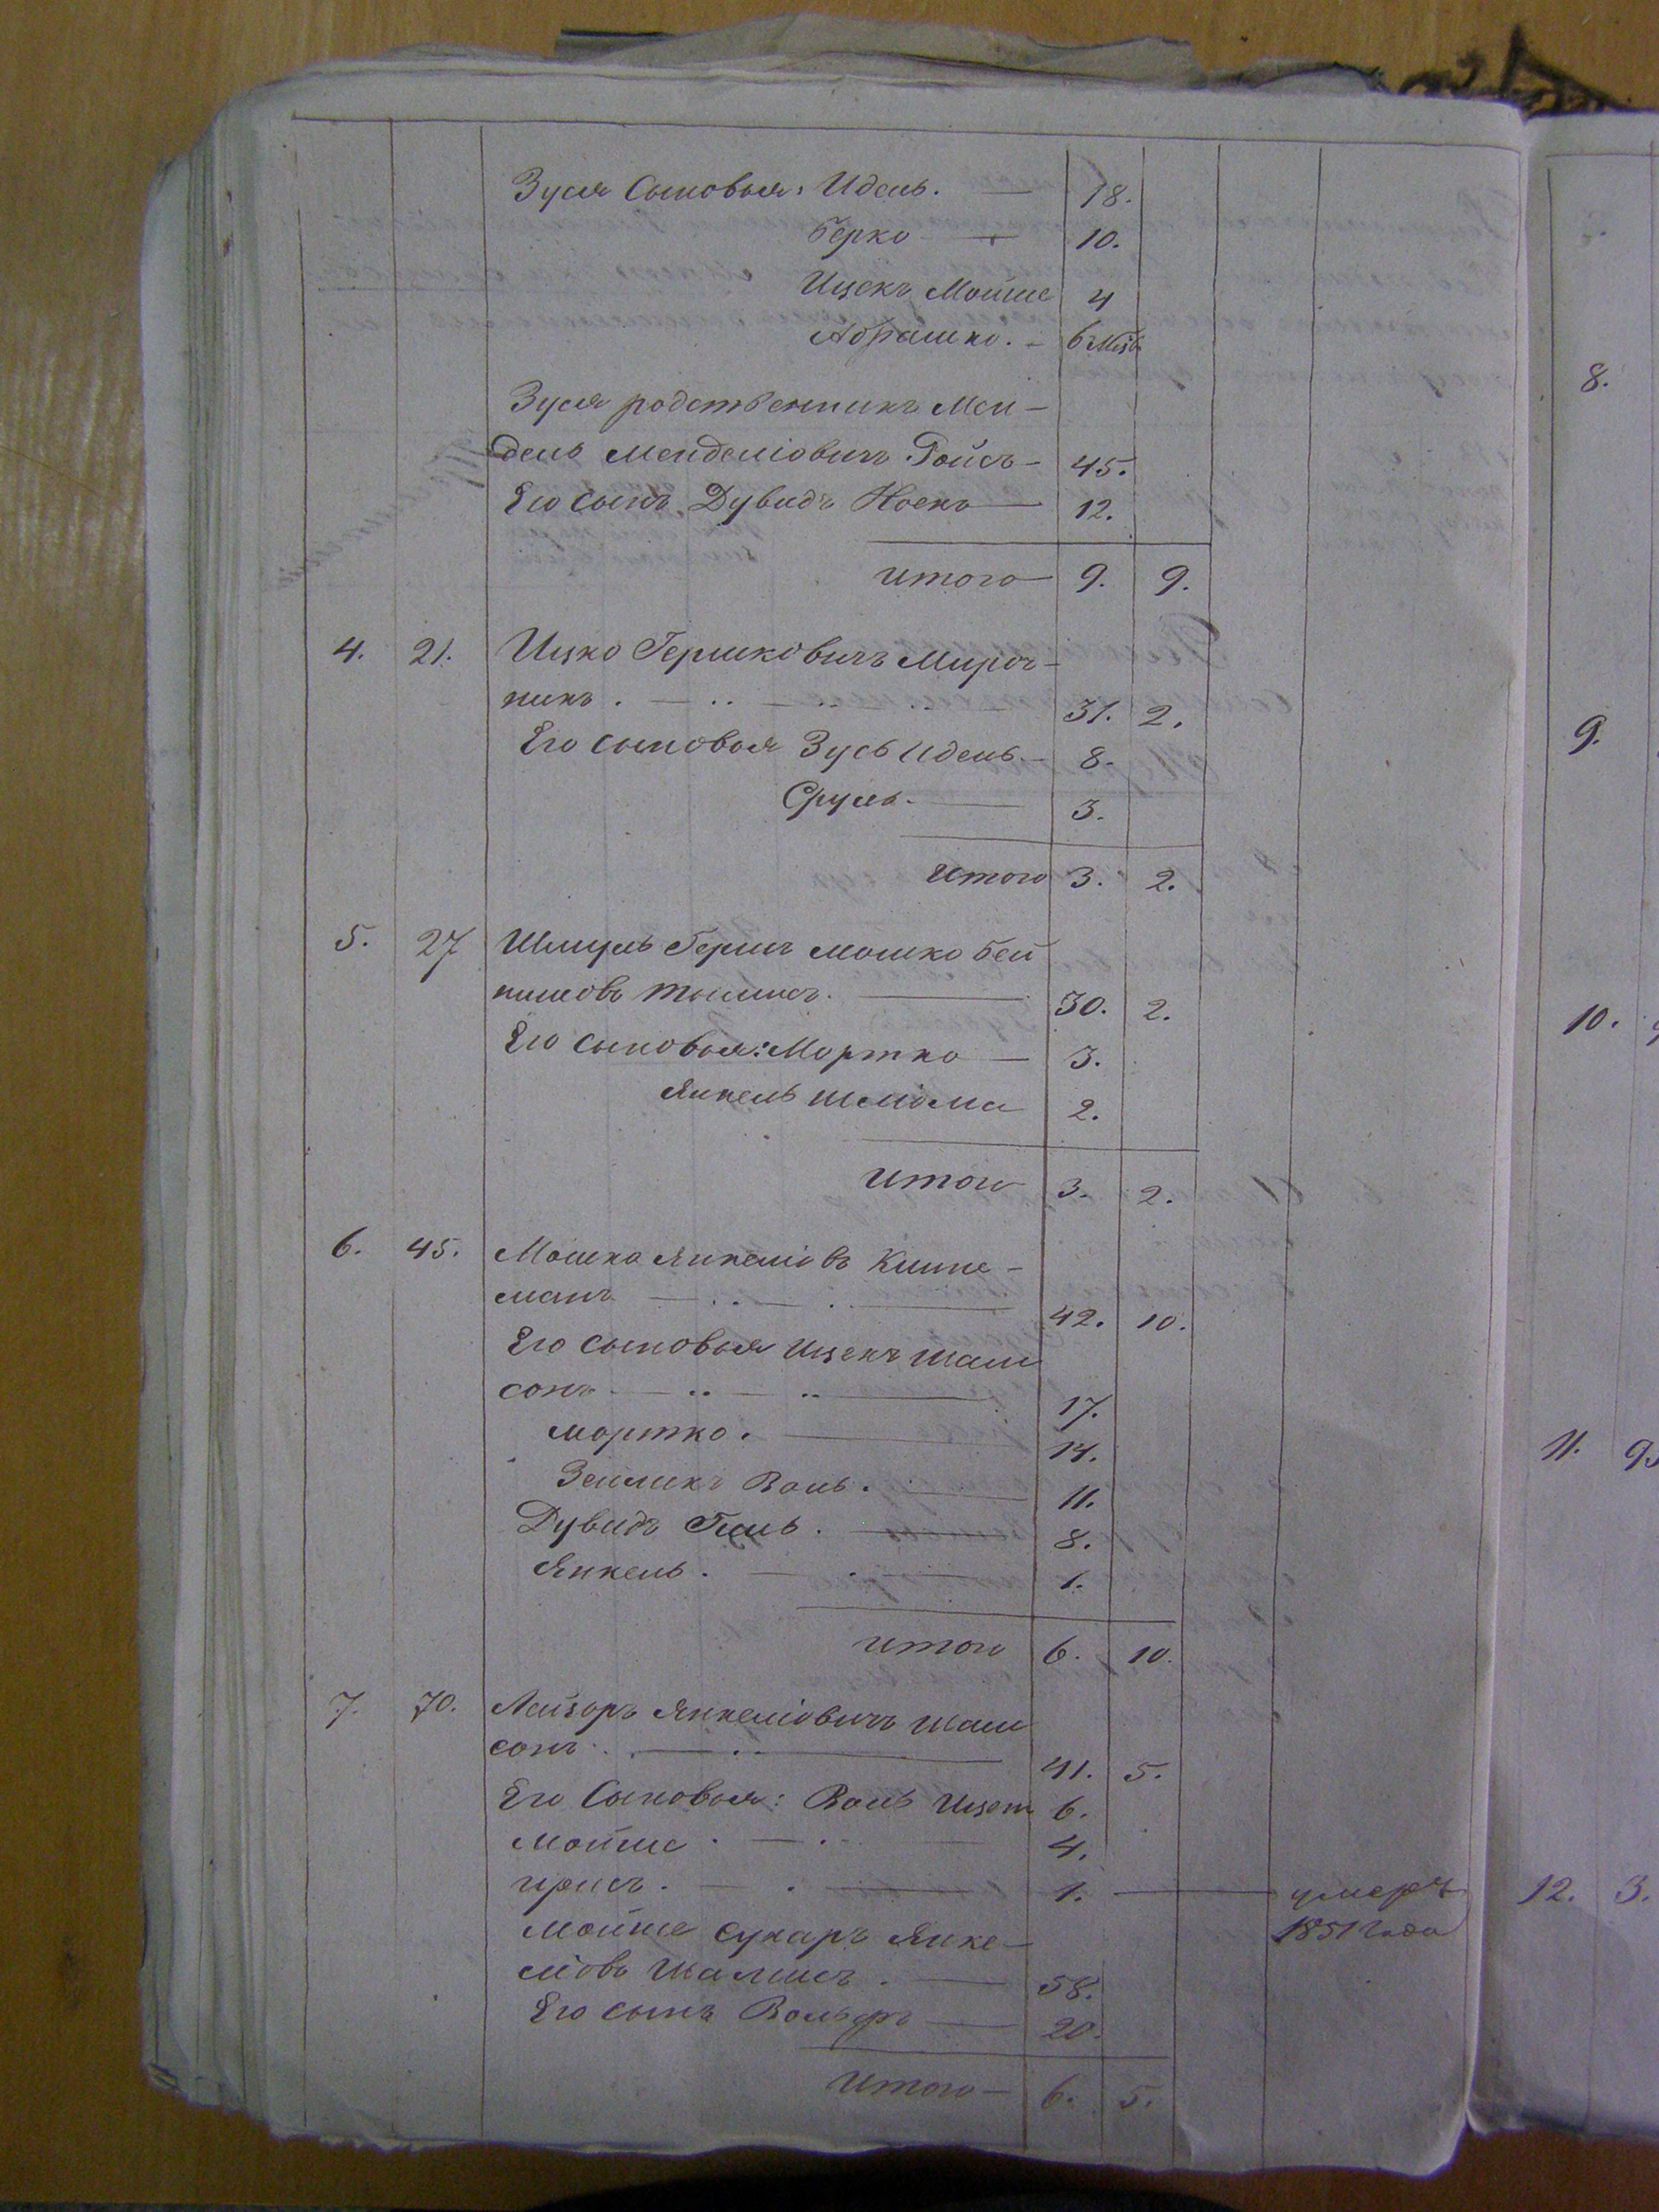 Зуся Сыновья: Идель. — 18.
Берко — 10.
Ицекъ Мойше 4
Абрашко. – 6 Мѣс
Зуся родственникъ Мен–
дель Менделіовичъ Гойсъ – 45.
Его сынъ Дувидъ Носекъ — 12.
Итого — 9. 9.
4. 21. Ицко Гершковичъ Мироч–
никъ . — .. — .. — .. — 31. 2.
Его сыновья Зусь Идель. — 8.
Сруль. — 3.
Итого 3. 2.
5. 27 Шмуль Гершъ Мошко Бей
нишовъ — 30. 2.
Его сыновья: Мортко — 3.
Янкель Шліома 2.
Итого 3. 2.
6. 45. Мошко Янкеліовъ –
манъ — .. — .. — 42. 10.
Его сыновья Ицекъ Шам
сонъ — .. — .. — 17.
Мортко. — 14.
Зелликъ Воль. — 11.
Дувидъ Гиль. — 8.
Янкель. — . — 1.
Итого 6. 10.
7. 70. Лейзоръ Янкеліовичъ Шам
сонъ . — .. — 41. 5.
Его Сыновья: Воль Ицекъ 6.
Мойше . — . — 4.
. — . — 1. — умеръ
1851 года
Мойше Сухаръ Янке–
ліовъ . — 58.
Его сынъ Вольфъ — 20.
Итого – 6. 5.
8.
9.
10.
11.
12. 3.